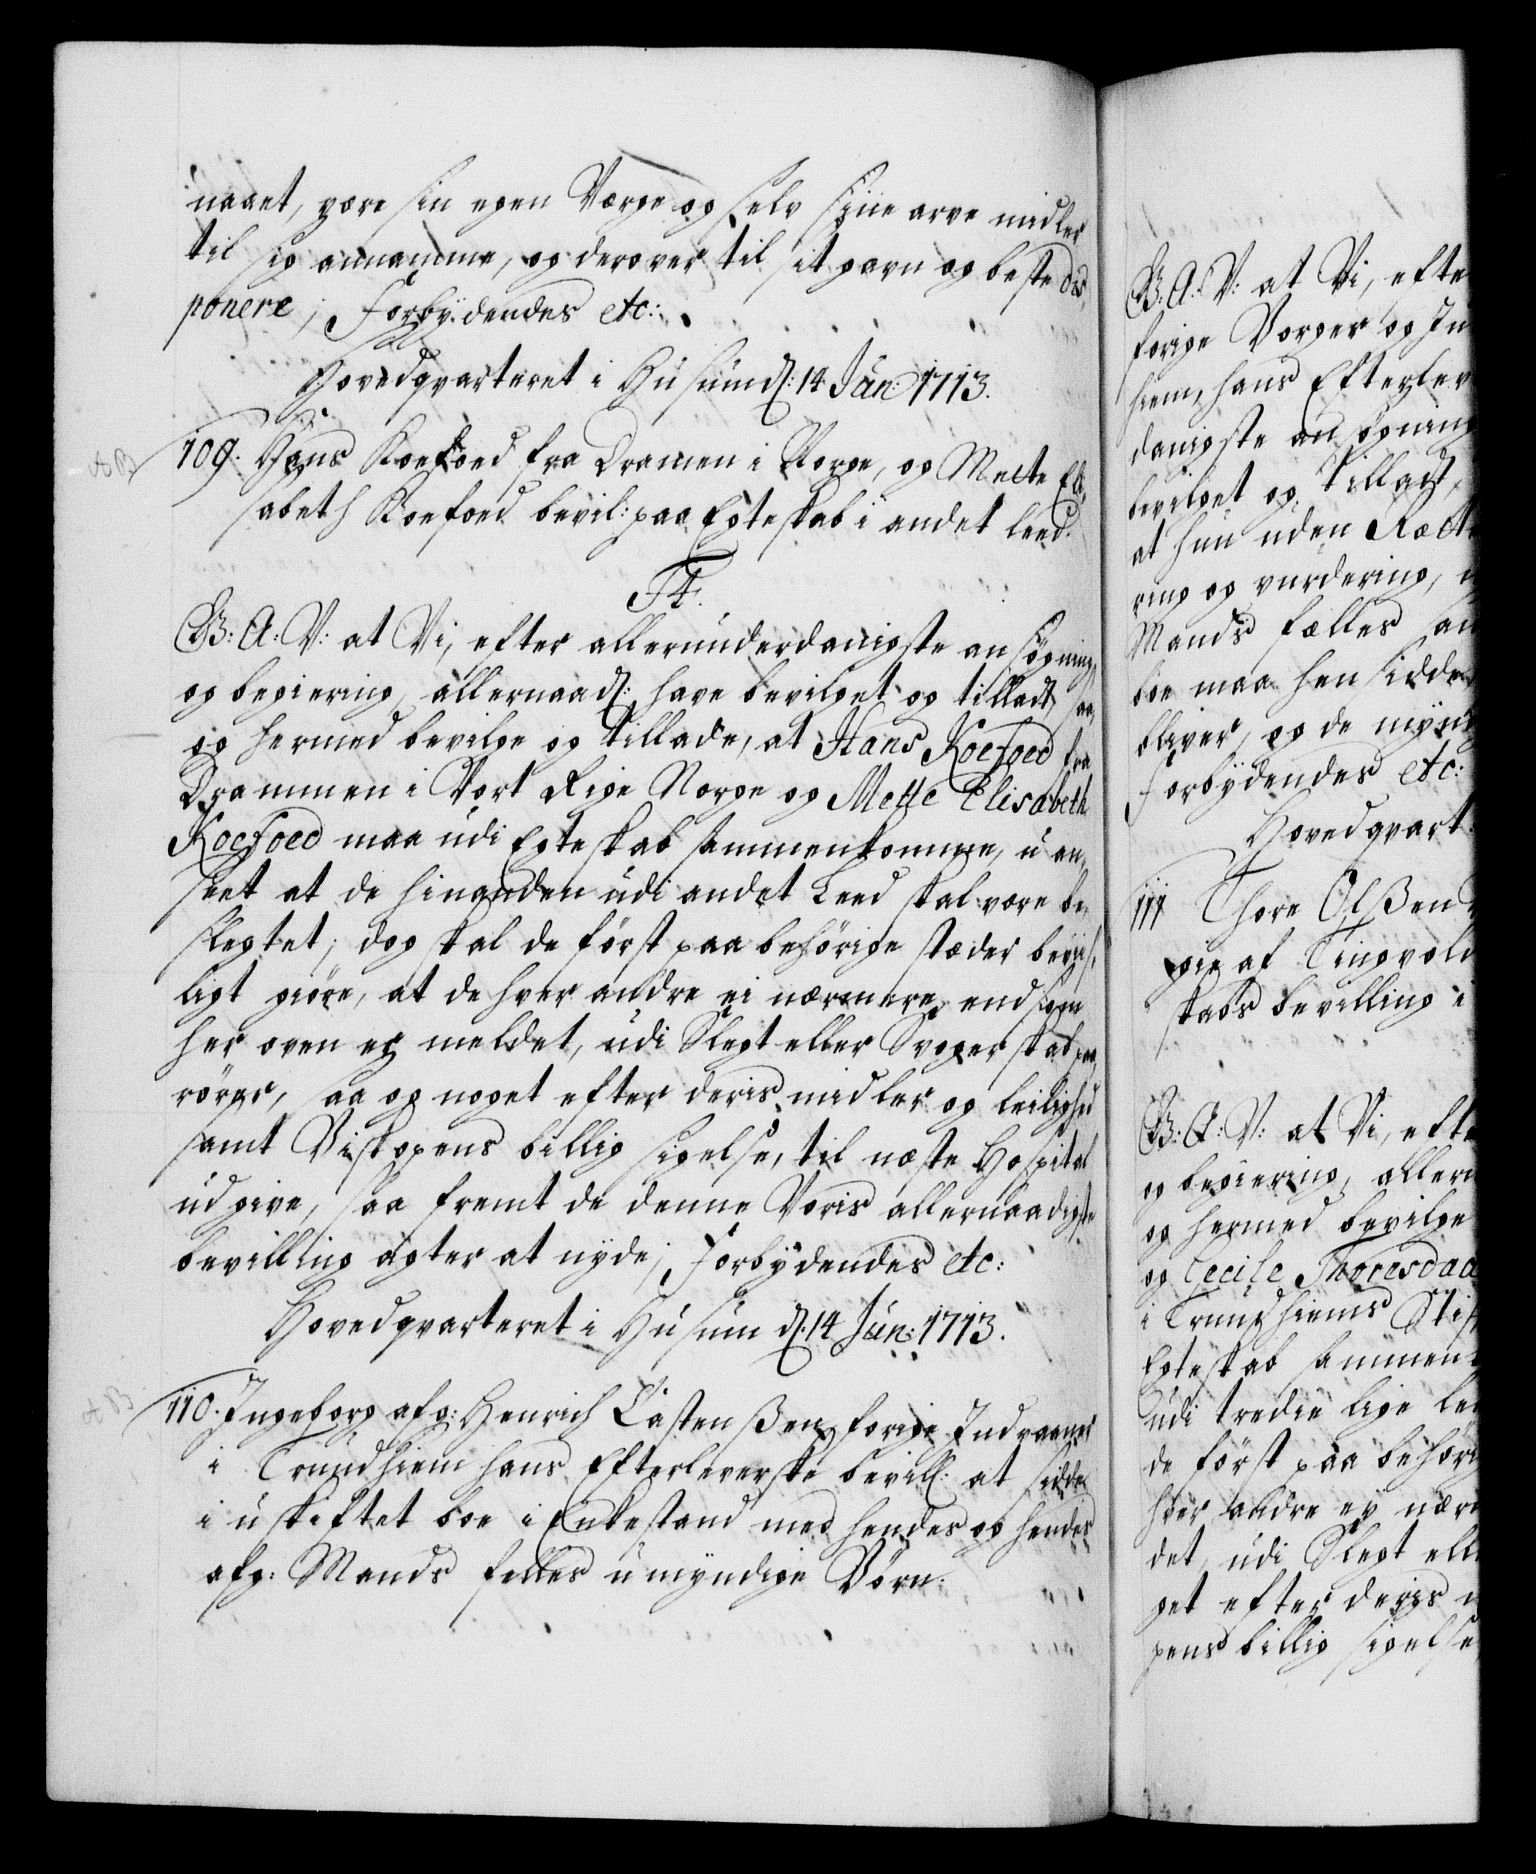 naaet, være sin egen Værge og selv siine arve midler
til sig annamme, og derover til sit gavn og beste dis,
ponere; Forbydendes etc:
Hovedqvarteret i Husum d: 14 Jun: 1713.
109. Hans Koefoed fra Dramen i Norge, og Mette Eli,
sabeth Koefoed bevil: paa Egteskab i andet leed.
F4.
G: A: V: at Vi, efter allerunderdanigste ansøgning
og begiering, allernaad: have bevilget og tilladt, saa
og hermed bevilge og tillade, at Hans Koefoed fra
Drammen i Vort Rige Norge og Mette Elisabeth
Koefoed maa udi Egteskab sammenkomme, u an,
seet at de hinanden udi andet Leed skal være be,
slegtet; dog skal de først paa behörige stæder beviis,
ligt giøre, at de hver andre ei nærmere end som
her oven er meldet, udi Slegt eller Svogerskab paa,
rører, saa og noget efter deris midler og leilighed
samt Biskopens billig sigelse, til næste Hospital
udgive, saa fremt de denne Voris allernaadigste
bevilling agter at nyde; Forbydendes etc:
Hovedqvarteret i Husum d: 14 Jun: 1713.
110. Ingeborg afg: Henrich Castenßen forige Indvaaner
i Trundhiem hans Efterleverske bevill: at sidde
i uskiftet boe i Enkestand med hendes og hendes
afg: Mands felles umyndige Börn.
G: A: V: at Vi, efte
forige Borger og In
hiem, hans Efterlev
danigste ansøgning
bevilget og tilladt,
at hun uden Rætt
ring og vurdering,
Mands fælles
boe maa hensidde
bliver, og de mynd
Forbydendes etc:
Hovedqvart
111 Thore Olßen
gie af Tingvold
skabs bevilling i
G: A: V: at Vi, efte
og begiering, allern
og hermed bevilge
og Cecile Thoresdaa
i Trundhiems Stif
Egteskab sammen
udi tredie lige le
de først paa behöri
hver andre ey nær
det, udi Slegt ell
get efter deris
pens billig sigelse